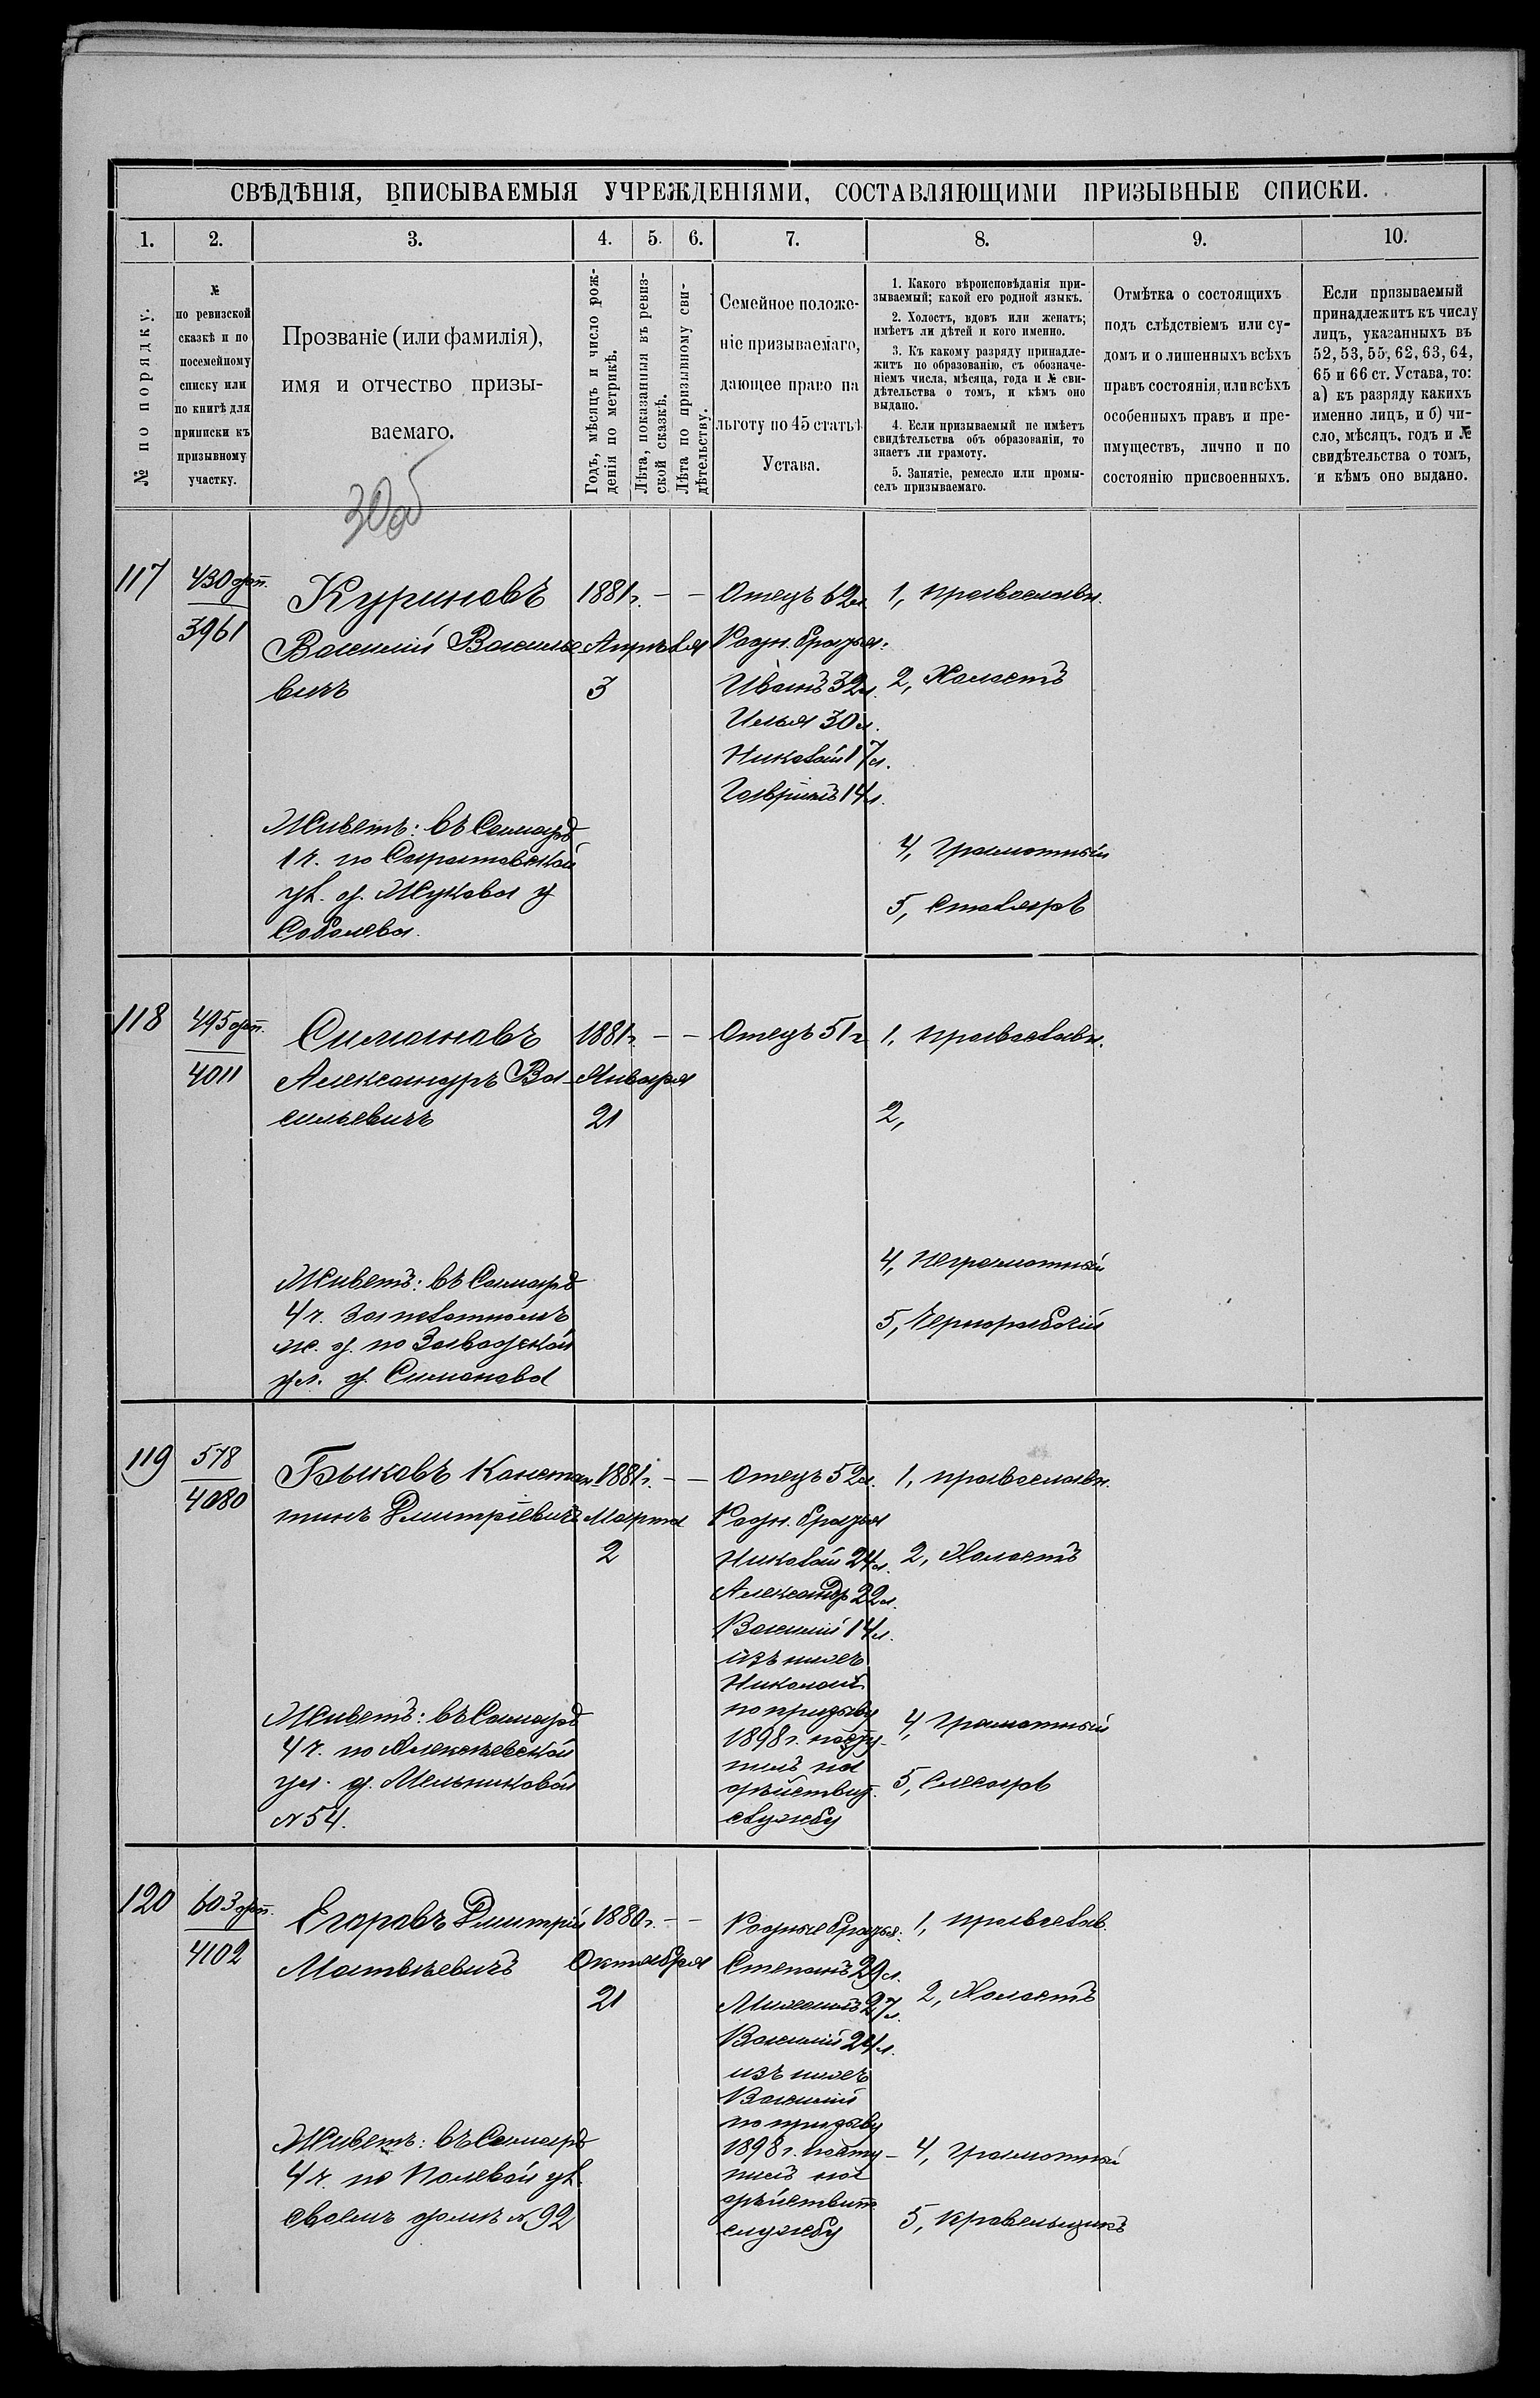 СВѢДѢНІЯ, ВПИСЫВАЕМЫЯ УЧРЕЖДЕНІЯМИ, СОСТАВЛЯЮЩИМИ ПРИЗЫВНЫЕ СПИСКИ.
1.
2.
3.
4.
5.
6.
7.
8.
9.
10.
№ по порядку.
№
по ревизской
сказкѣ и по
посемейному
списку или
по книгѣ для
приписки къ
призывному
участку.
Прозваніе (или фамилія),
имя и отчество призы-
ваемаго.
Годъ, мѣсяцъ и число рож-
денія по метрикѣ.
Лѣта, показанныя въ ревиз-
ской сказкѣ.
Лѣта по призывному сви-
дѣтельству.
Семейное положе-
ніе призываемаго,
дающее право на
льготу по 45 статьѣ
Устава.
1. Какого вѣроисповѣданія при-
зываемый; какой его родной языкъ.
2. Холостъ, вдовъ или женатъ;
имѣетъ ли дѣтей и кого именно.
3. Къ какому разряду принадле-
житъ по образованію, съ обозначе-
ніемъ числа, мѣсяца, года и № сви-
дѣтельства о томъ, и кѣмъ оно
выдано.
4. Если призываемый не имѣетъ
свидѣтельства объ образованіи, то
знаетъ ли грамоту.
5. Занятіе, ремесло или промы-
селъ призываемаго.
Отмѣтка о состоящихъ
подъ слѣдствіемъ или су-
домъ и о лишенныхъ всѣхъ
правъ состоянія, или всѣхъ
особенныхъ правъ и пре-
имуществъ, лично и по
состоянію присвоенныхъ.
Если призываемый
принадлежитъ къ числу
лицъ, указанныхъ въ
52, 53, 55, 62, 63, 64,
65 и 66 ст. Устава, то:
а) къ разряду какихъ
именно лицъ, и б) чи-
сло, мѣсяцъ, годъ и №
свидѣтельства о томъ,
и кѣмъ оно выдано.
30об
117
430
3961
Куриновъ
Василій Василье-
вичъ
Живетъ: въ Самарѣ
1 ч. по Саратовской
ул. д. Жукова у
Соболева.
1881 г.
Апрѣля
3
— —
Отецъ 62 л.
Родн. братья:
Иванъ 32 л.
Илья 30 л.
Николай 17 л.
Гавріилъ 14 л.
1, Православн.
2, Холостъ
4, Грамотный
5, Столяръ
118
495
4011
Симановъ
Александръ Ва-
сильевичъ
Живетъ: въ Самарѣ
4 ч. за полотномъ
ж. д. по Заводской
ул. д. Симанова
1881 г.
Января
21
— —
Отецъ 51 г.
1, Православн.
2,
4, Неграмотный
5, Чернорабочій
119
578
4080
Быковъ Констан-
тинъ Дмитріевичъ
Живетъ: въ Самарѣ
4 ч. по Алексѣевской
ул. д. Мельниковой
№ 54.
1881 г.
Марта
2
— —
Отецъ 52 л.
Родн. братья
Николай 24 л.
Александр 22 л.
Василій 14 л.
изъ нихъ
Николай
по призыву
1898 г. посту-
пилъ на
дѣйствит.
службу
1, православн.
2, Холостъ
4, Грамотный
5, Слесарь
120
603
4102
Егоровъ Дмитрій
Матвѣевичъ
Живетъ: въ Самарѣ
4 ч. по Полевой ул.
своемъ домѣ № 92
1880 г.
Октября
21
— —
Родные братья:
Степанъ 29 л.
Михаилъ 27 л.
Василій 24 л.
изъ нихъ
Василій
по призыву
1898 г. посту-
пилъ на
дѣйствит.
службу
1, Православ.
2, Холостъ
4, Грамотный
5, Кровельщикъ